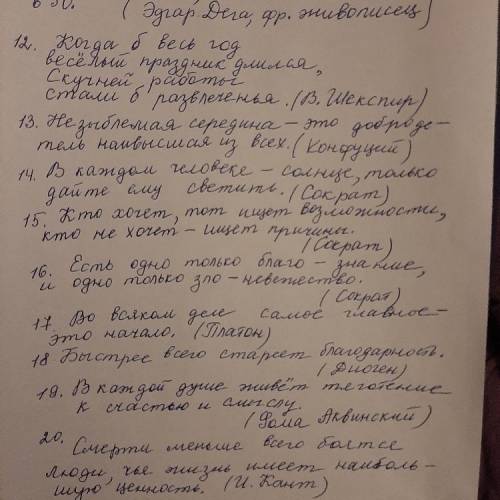 в 50. (Эдгар Дега, фр. живописец)
12. Когда б весь год
весёлый праздник длился,
Скучней работы
стали б развлеченья. (В. Шекспир)
13. Незыблемая середина – это доброде-
тель наивысшая из всех. (Конфуций)
14. В каждом человеке – солнце, только
дайте ему светить. (Сократ)
15. Кто хочет, тот ищет возможности,
кто не хочет – ищет причины.
(Сократ)
16. Есть одно только благо – знание,
и одно только зло – невежество.
(Сократ)
17. Во всяком деле самое главное –
это начало. (Платон)
18 Быстрее всего стареет благодарность.
(Диоген)
19. В каждой душе живёт тяготение
к счастью и смыслу.
(Фома Аквинский)
20. Смерти меньше всего боятся
люди, чье жизнь имеет наиболь-
шую ценность. (И. Кант)